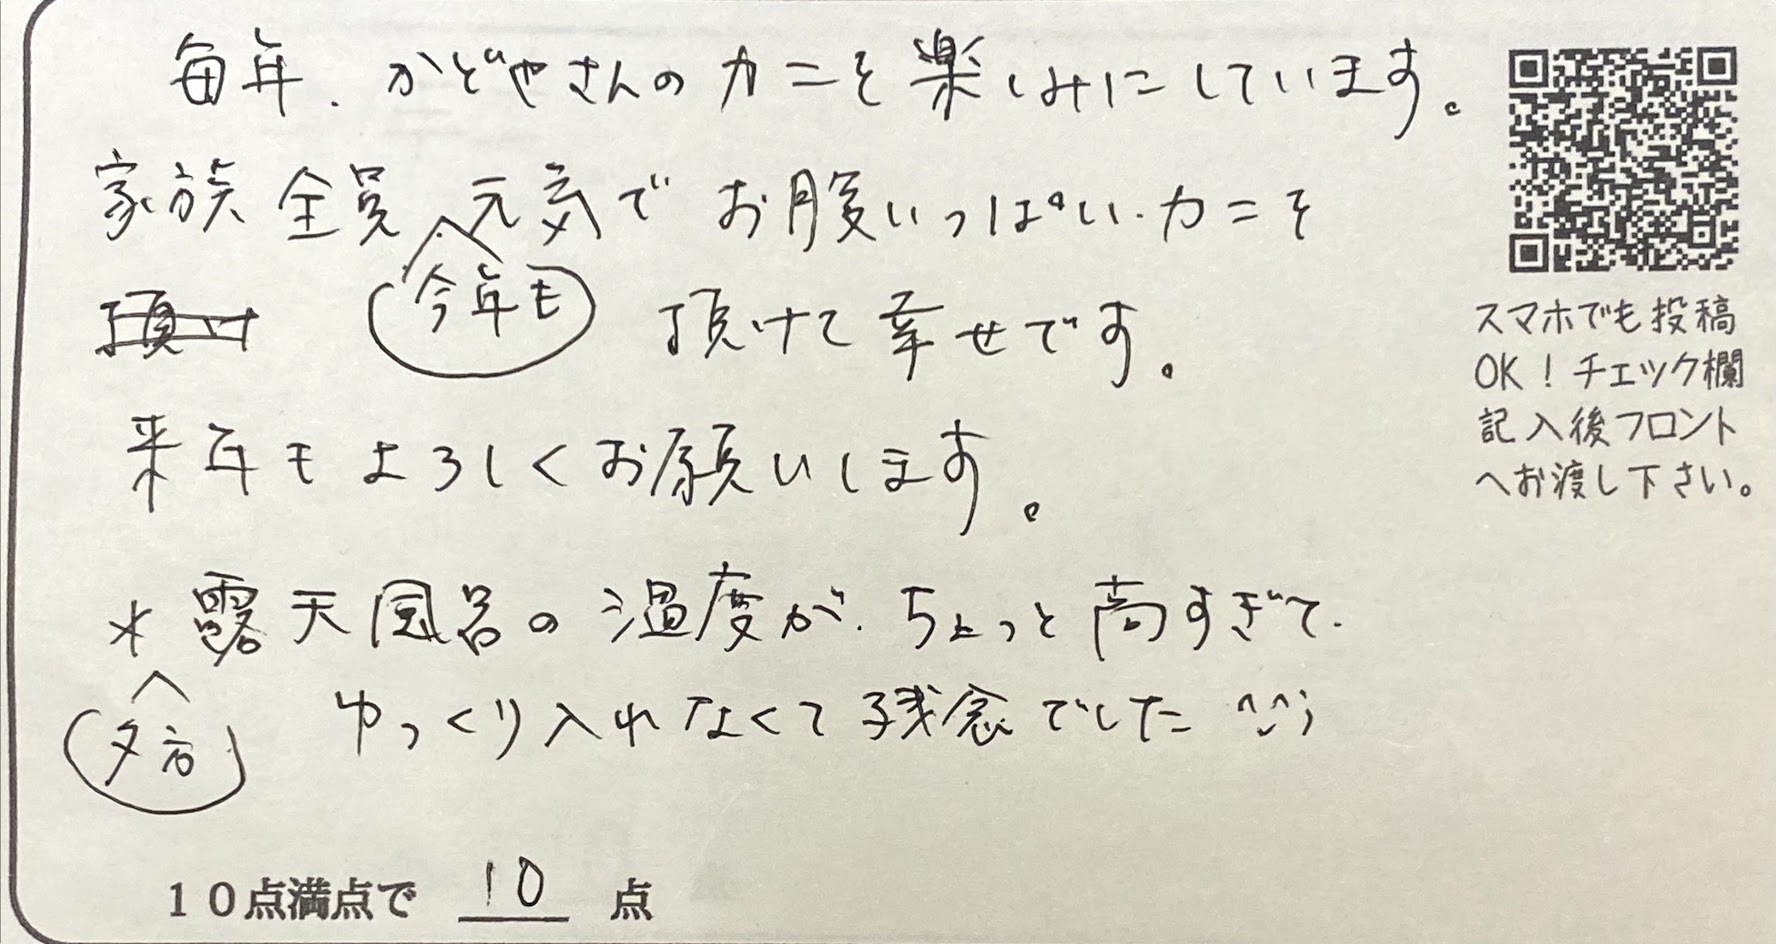 毎年、かどやさんのカニを楽しみにしています。
家族全員、元気でお腹いっぱい、カニを
今年も
頂けて幸せです。
来年もよろしくお願いします。
* 露天風呂の温度が、ちょっと高すぎて、
夕方
ゆっくり入れなくて残念でした
10点満点で 10 点
スマホでも投稿
OK！チェック欄
記入後フロント
へお渡し下さい。